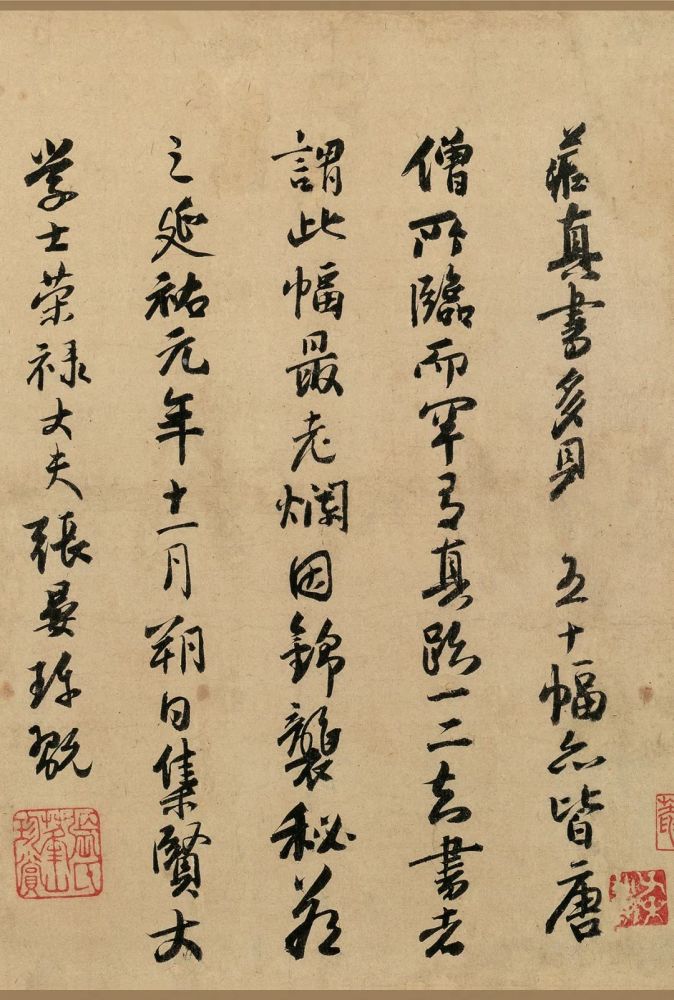 藏真書多見 五十幅亦皆唐
僧所臨而罕有真跡一二知書者
謂此幅最老爛因錦襲秘藏
之延祐元年十一月朔日集賢大
学士荣禄大夫張晏珍翫